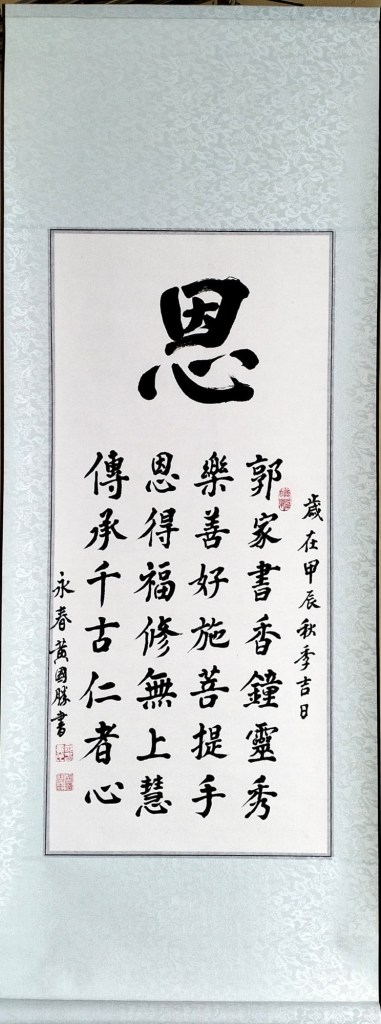 恩
歲在甲辰秋季吉日
郭家書香鐘靈秀
樂善好施菩提手
恩得福修無上慧
傳承千古仁者心
永春黃國勝書